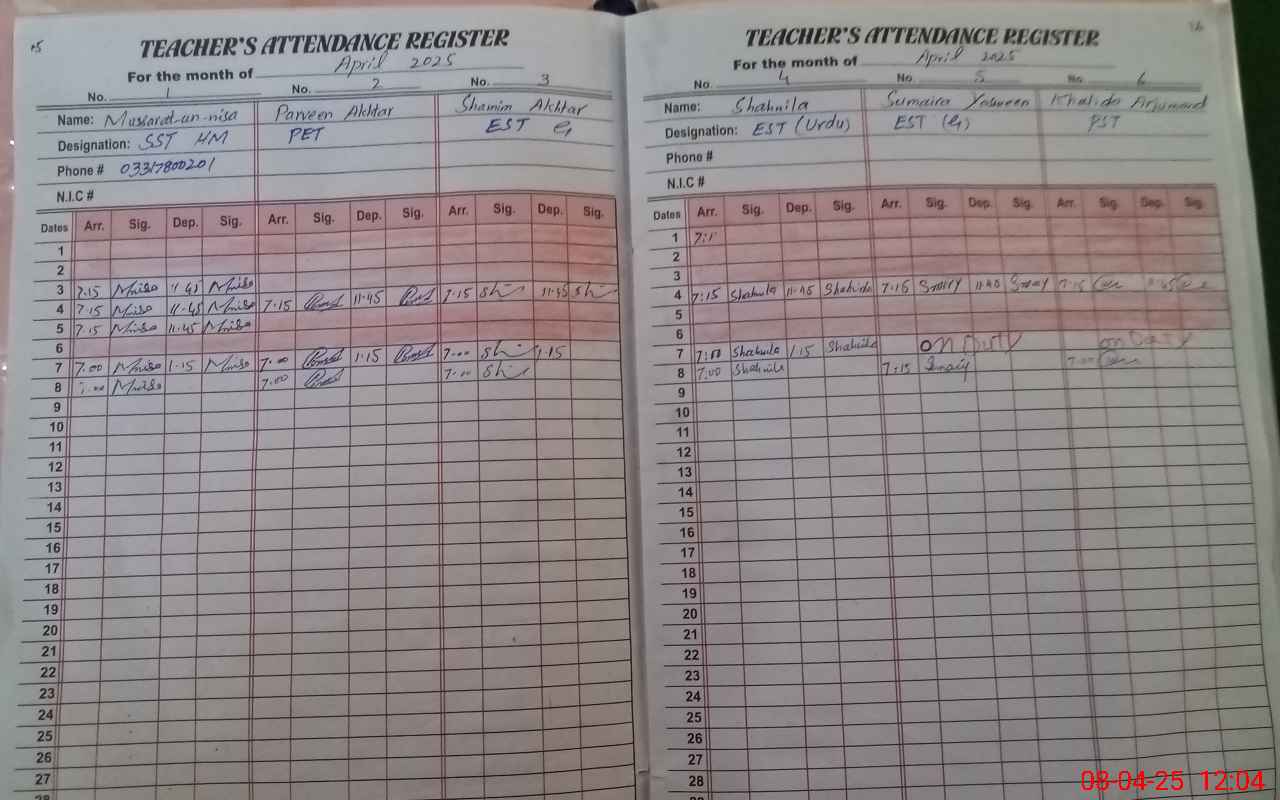 15
TEACHER'S ATTENDANCE REGISTER
For the month of April 2025
No. 1 No. 2 No. 3
Name: Mussarat-un-nisa Parveen Akhtar Shamim Akhtar
Designation: SST HM PET EST
Phone # 03317800201
N.I.C #
Dates Arr. Sig. Dep. Sig. Arr. Sig. Dep. Sig. Arr. Sig. Dep. Sig.
1
2
3 7.15 11.45
4 7.15 11.45 7.15 11.45 7.15 11.45
5 7.15 11.45
6
7 7.00 1.15 7.00 1.15 7.00 1.15
8 7.00 7.00
9
10
11
12
13
14
15
16
17
18
19
20
21
22
23
24
25
26
27
28
TEACHER'S ATTENDANCE REGISTER
For the month of April 2025
No. 4 No. 5 No. 6
Name: Shahnila Sumaira Yasmeen Khalida Arjumand
Designation: EST (Urdu) EST PST
Phone #
N.I.C #
Dates Arr. Sig. Dep. Sig. Arr. Sig. Dep. Sig. Arr. Sig. Dep. Sig.
1 7:1
2
3
4 7:15 Shahnila 11:45 Shahnila 7:15 11:45 7:15 11:45
5
6
7 7:00 Shahnila 1:15 Shahnila on Duty on Duty
8 7:00 Shahnila 7:15 7:00
9
10
11
12
13
14
15
16
17
18
19
20
21
22
23
24
25
26
27
28
08-04-25 12:04